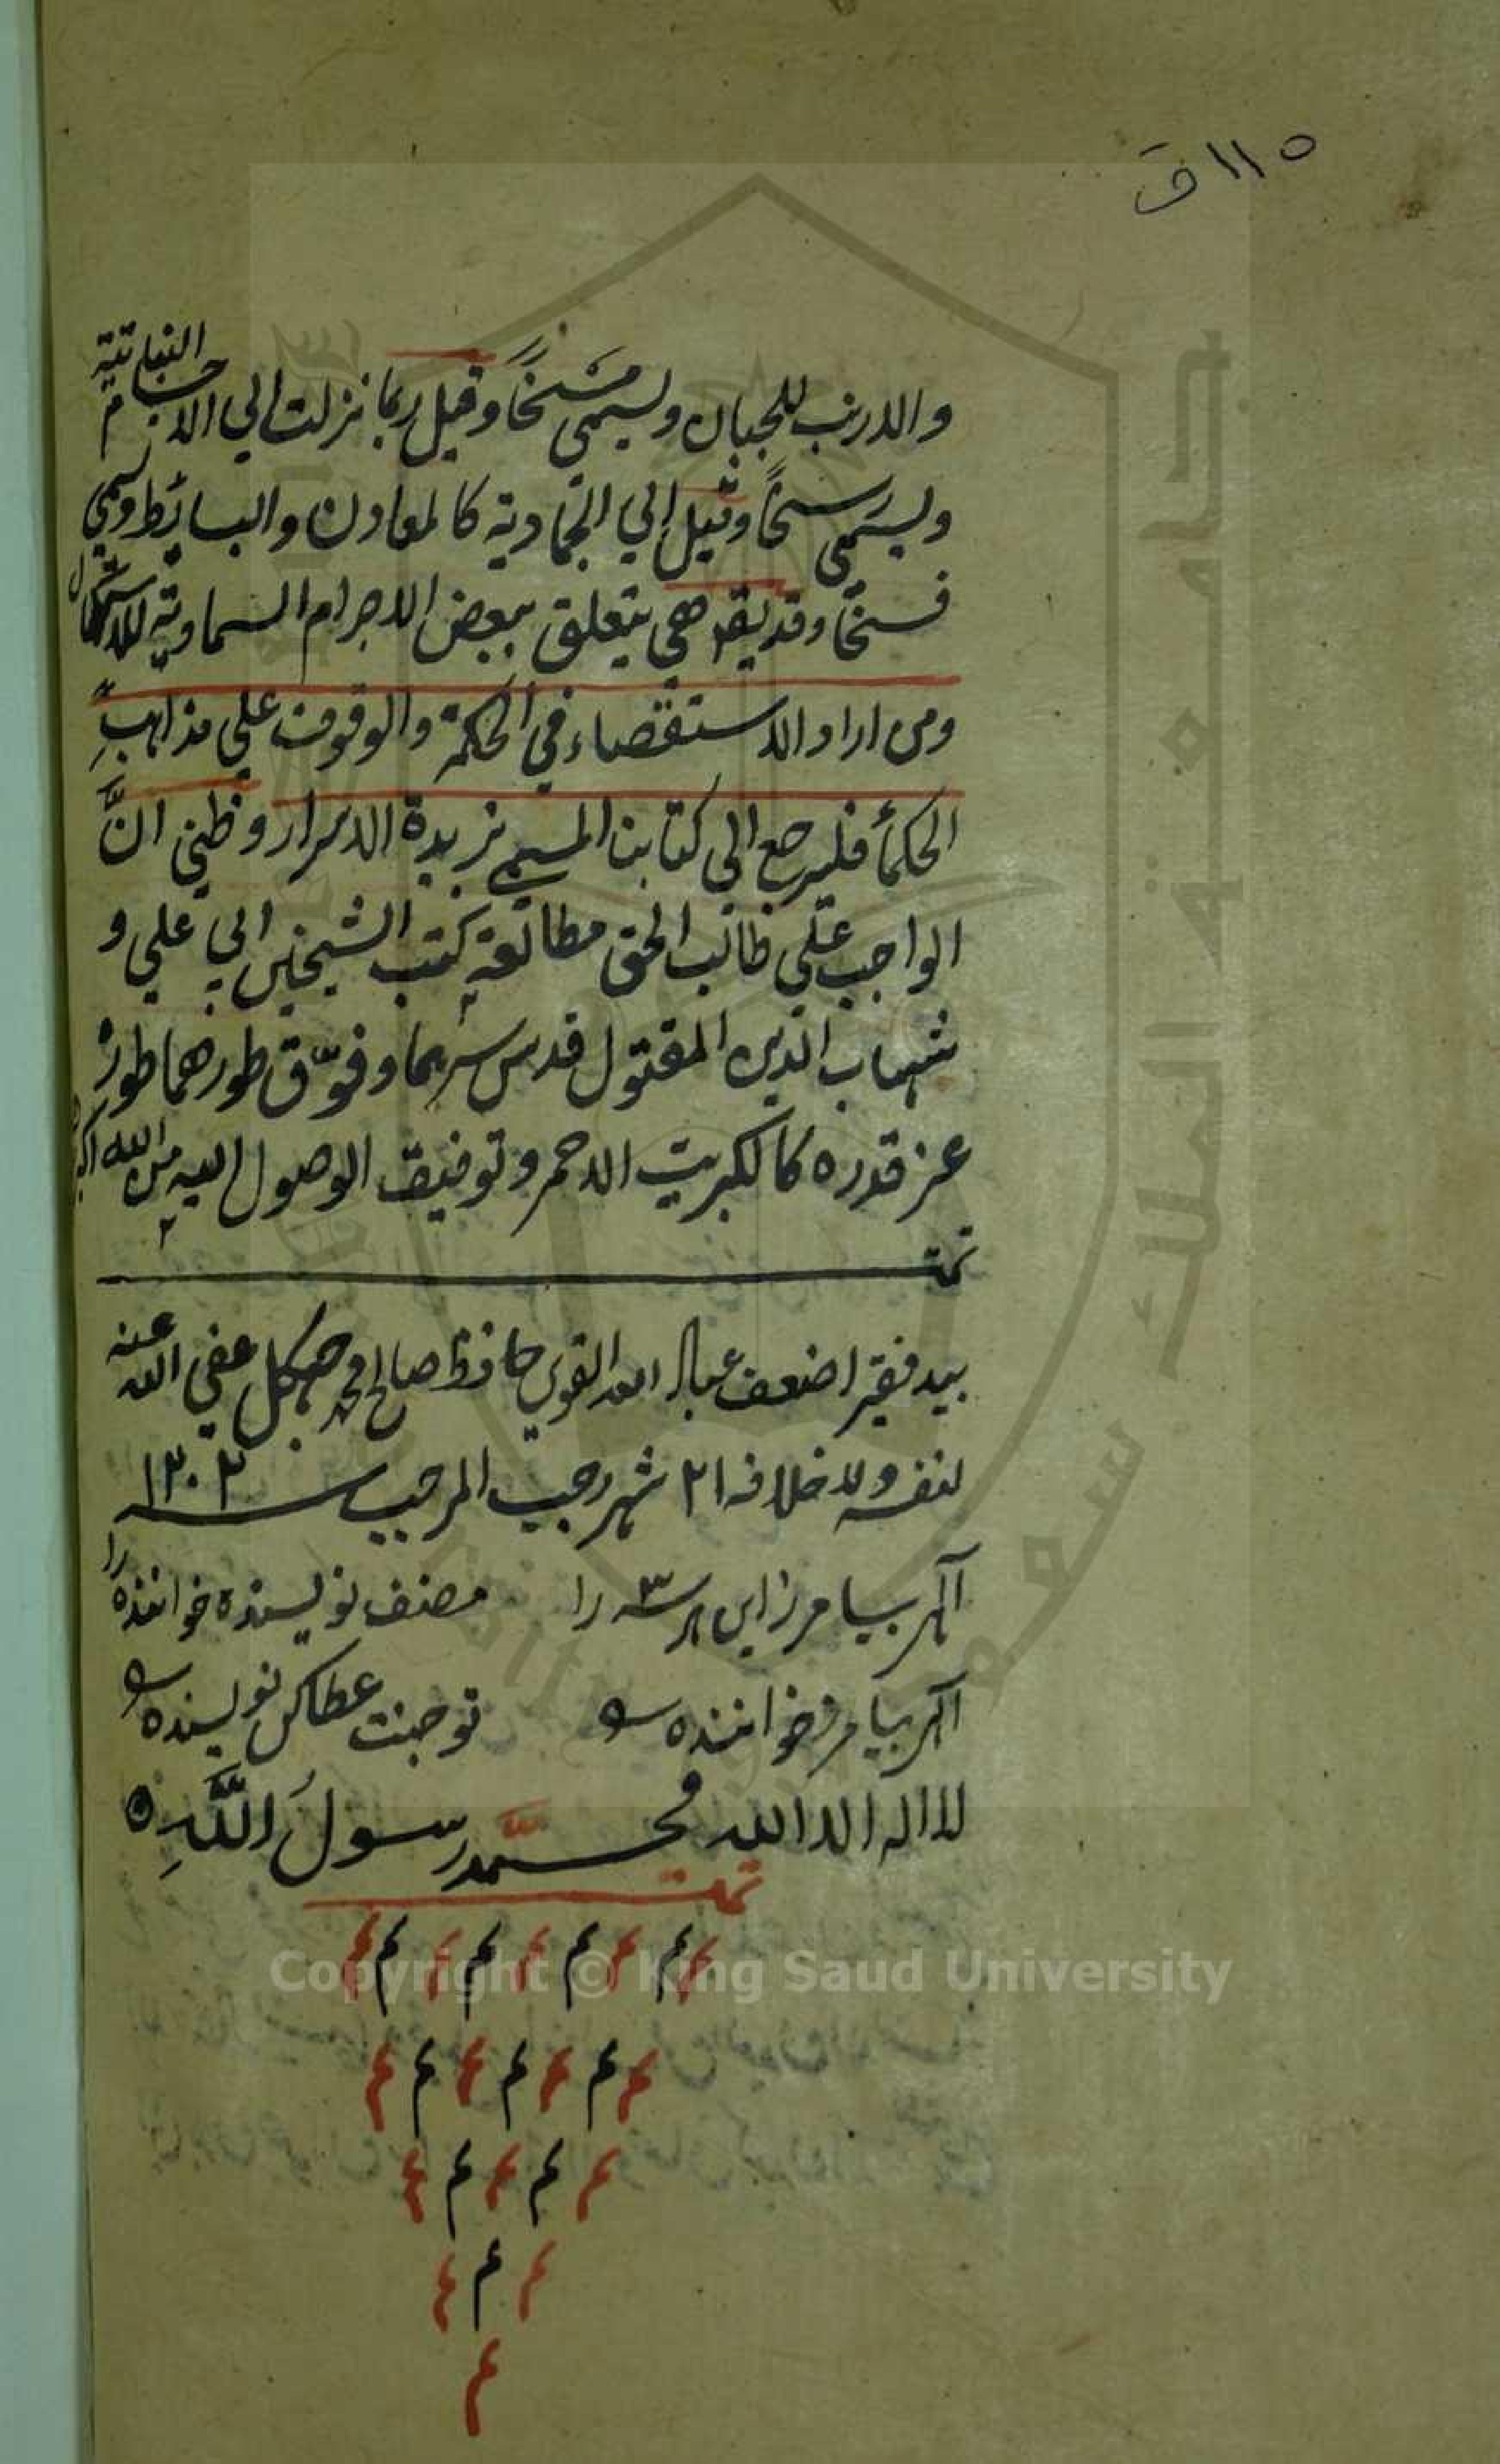 ١١٥ ق
والارنب للجبان ويسمى مسخًا وقيل ربما نزلت الي الاجسام النباتية
ويسمى رسخًا وقيل إلي الجمادية كالمعادن والبسائط وسمي
فسخًا وقد يقر هي يتعلق ببعض الاجرام السماوية للاستكمال
ومن اراد الاستقصاء في الحكمة والوقوف علي مذاهب
الحكمأ فليرجع الى كتابنا المسمي بزبدة الاسرار وظني انَّ
الواجب علي طالب الحق مطالعة كتب الشيخين ابي علي و
شهاب الدين المقتول قدس سرهما وفوق طورهما طورٌ
عز قدره كالكبريت الاحمر وتوفيق الوصول اليه من الله اكبر
تمت
بيد فقير اضعف عباد الله القوي حافظ صالح محمد عفي الله عنه
لنفسه ولاخلافه ٢١ شهر رجب المرجب سنه ١٣٠٢
الهي بيامرز اين هر سه را مصنف نويسنده خواننده را
الهي بيامرز خواننده تو جنت عطا كن نويسنده
لا اله الا الله محمّد رسولُ اللّٰهِ
تمت
م م م م م م م م م
م م م م م م م
م م م م م
م م م
م
جامعة الملك سعود
Copyright © King Saud University